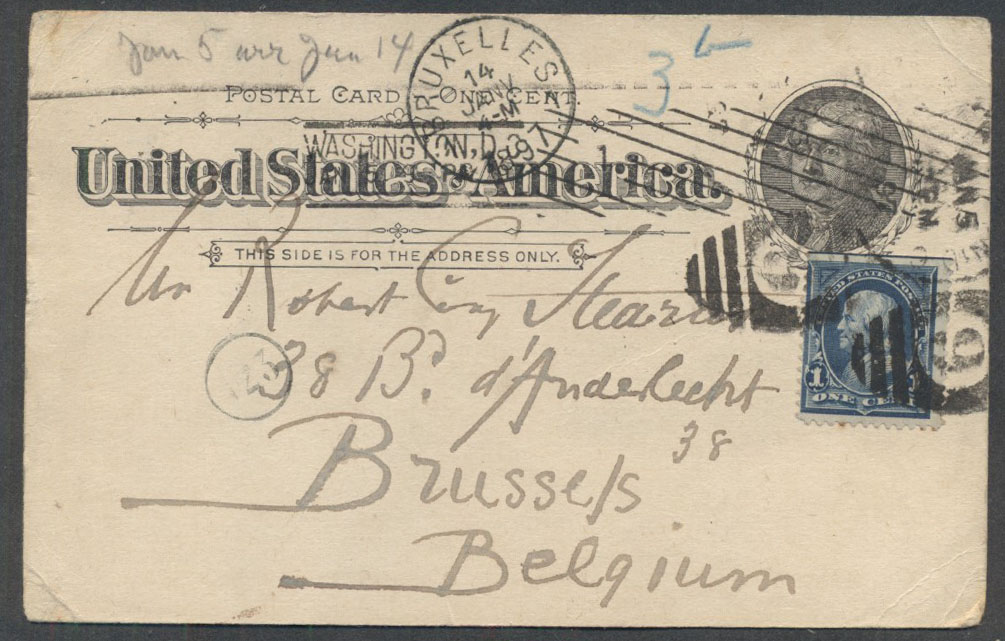 Jan 5 arr Jan 14
3
BRUXELLES
14
JANV
4-M
1897
POSTAL CARD ONE CENT.
WASHINGTON, D.C.
United States of America.
THIS SIDE IS FOR THE ADDRESS ONLY.
Mr Robert
38 Bd. d'Anderlecht
38
Brussels
Belgium
UNITED STATES POSTAGE
1
ONE CENT